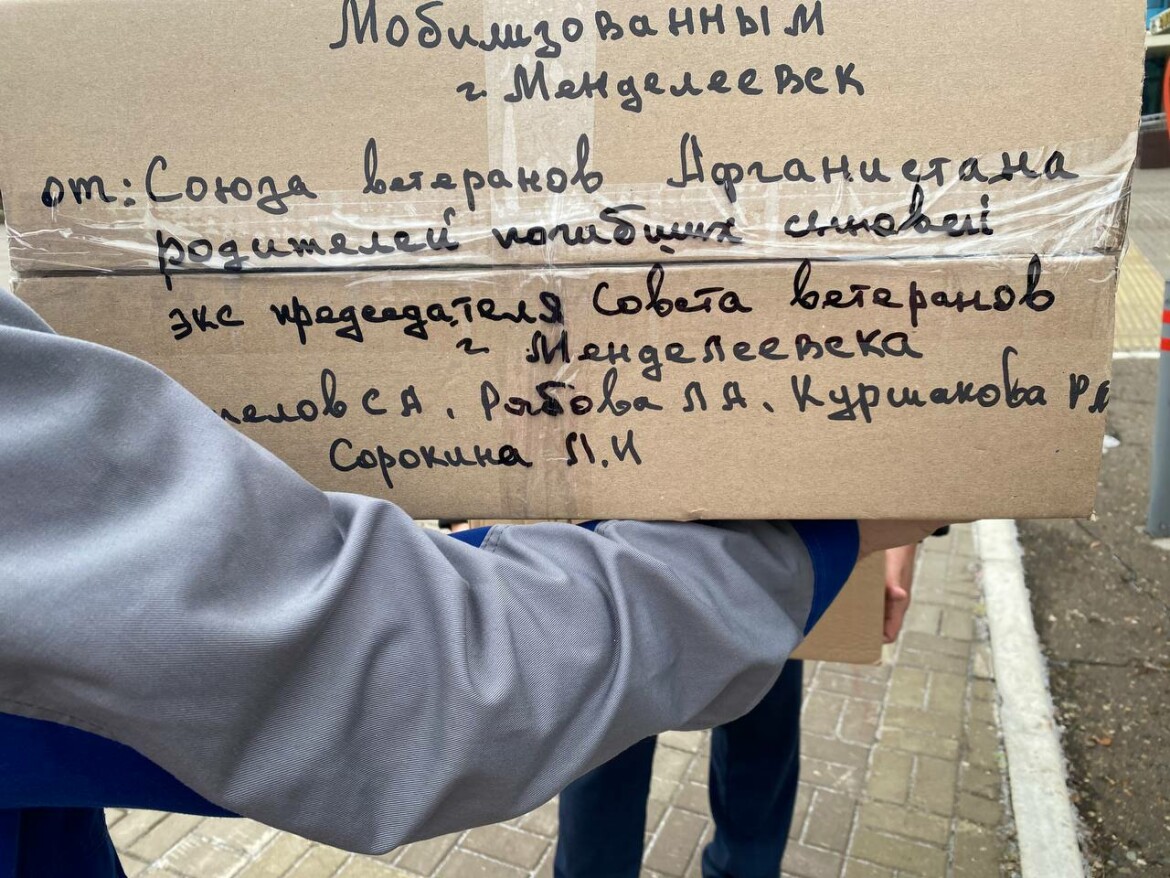 Мобилизованным
г. Менделеевск
от: Союза ветеранов Афганистана
родителей погибших сыновей
экс председателя Совета ветеранов
г. Менделеевска
С А. Рябова Л А. Куршакова Р
Сорокина Л. И